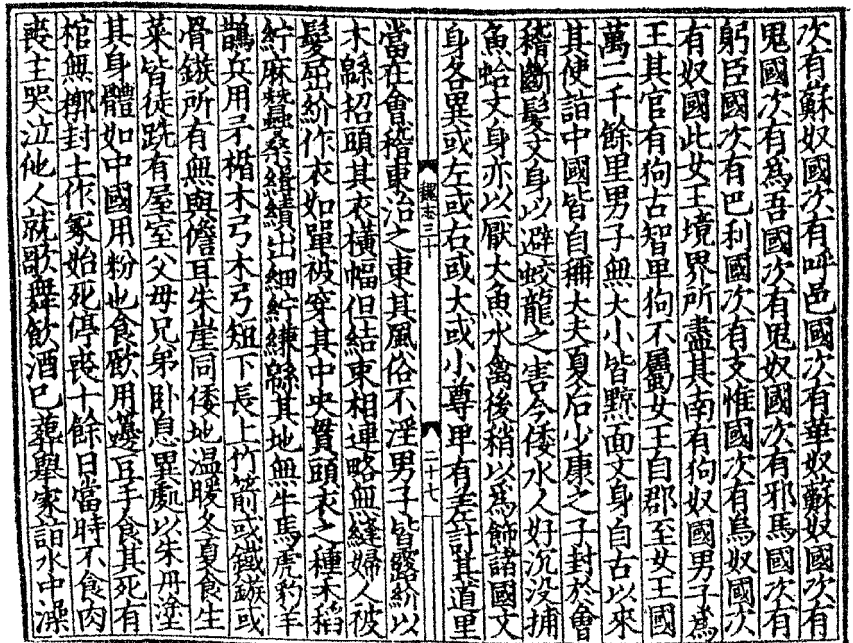 次有蘇奴國次有呼邑國次有華奴蘇奴國次有
鬼國次有爲吾國次有鬼奴國次有邪馬國次有
躬臣國次有巴利國次有支惟國次有烏奴國次
有奴國此女王境界所盡其南有狗奴國男子爲
王其官有狗古智卑狗不屬女王自郡至女王國
萬二千餘里男子無大小皆黥面文身自古以來
其使詣中國皆自稱大夫夏后少康之子封於會
稽斷髮文身以避蛟龍之害今倭水人好沉没捕
魚蛤文身亦以厭大魚水禽後稍以爲飾諸國文
身各異或左或右或大或小尊卑有差計其道里
魏志三十
二十七
當在會稽東治之東其風俗不淫男子皆露紒以
木緜招頭其衣橫幅但結束相連略無縫婦人被
髮屈紒作衣如單被穿其中央貫頭衣之種禾稻
紵麻蠶桑緝績出細紵縑緜其地無牛馬虎豹羊
鵲兵用矛楯木弓木弓短下長上竹箭或鐵鏃或
骨鏃所有無與儋耳朱崖同倭地温暖冬夏食生
菜皆徒跣有屋室父母兄弟卧息異處以朱丹塗
其身體如中國用粉也食飲用籩豆手食其死有
棺無槨封土作冢始死停喪十餘日當時不食肉
喪主哭泣他人就歌舞飲酒已葬舉家詣水中澡